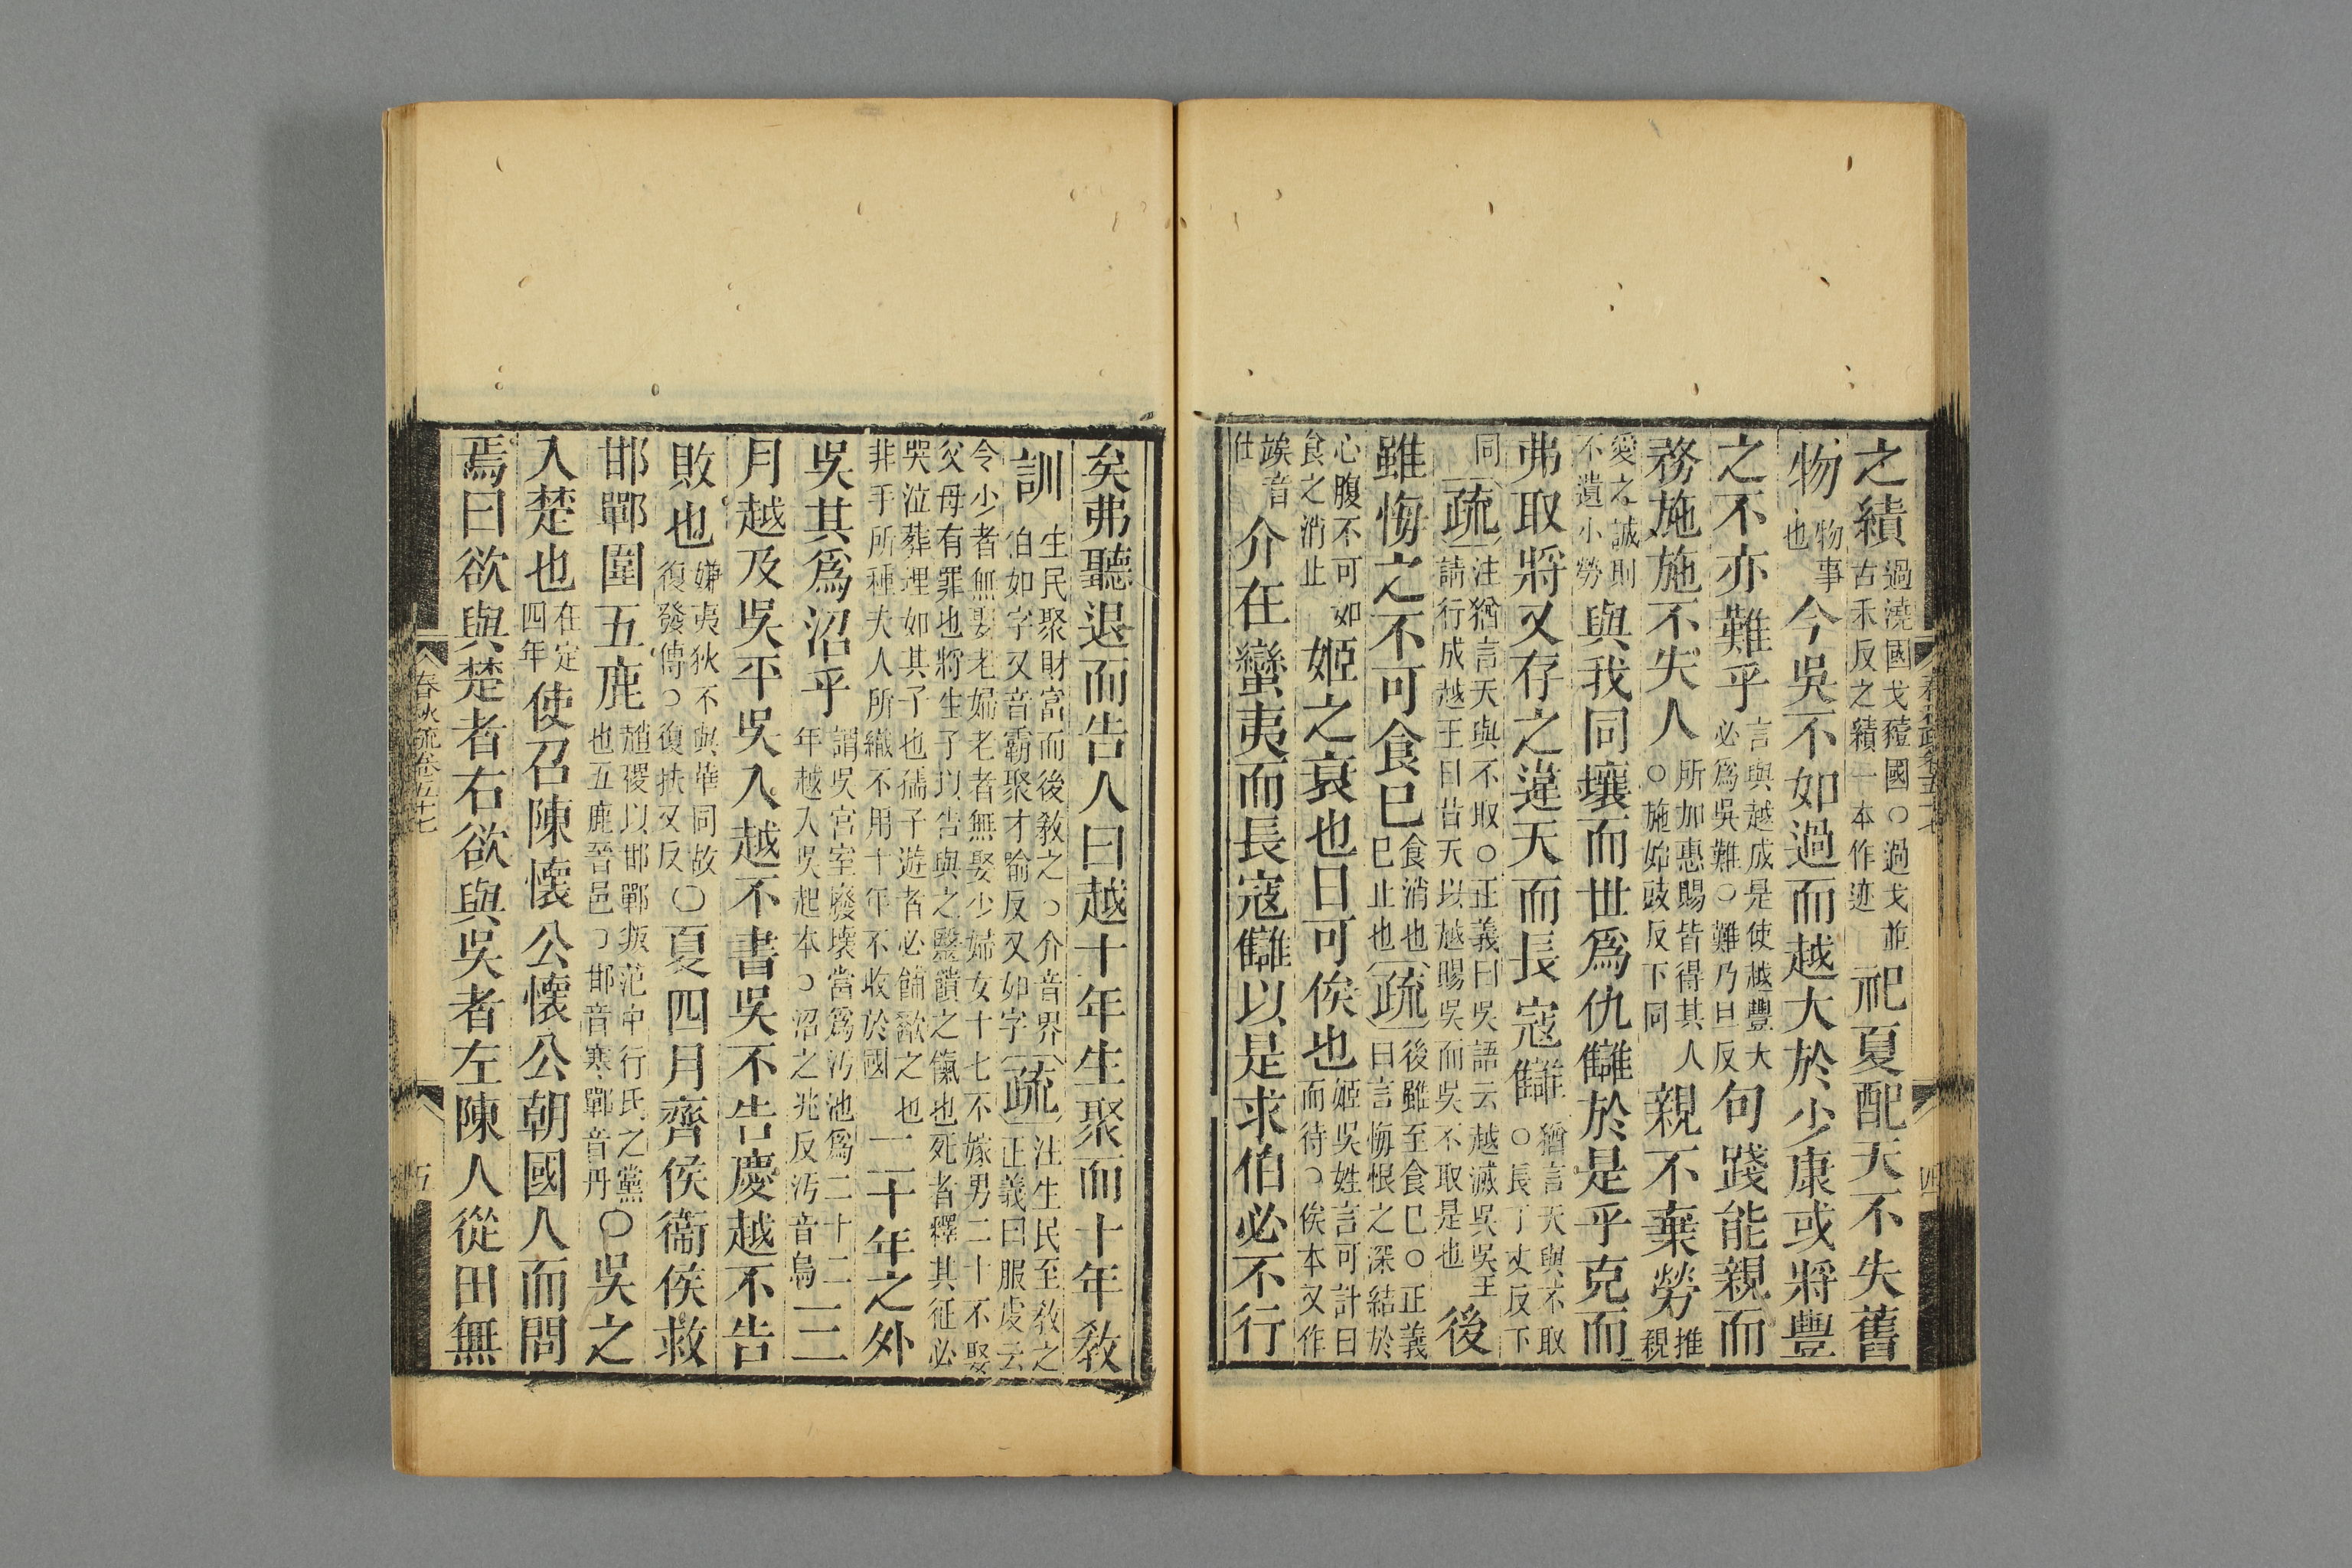 之績過澆國戈豷國○過戈並古禾反之績一本作迹祀夏配天不失舊
物物事也今吳不如過而越大於少康或將豐
之不亦難乎言與越成是使越豐大必爲吳難○難乃旦反句踐能親而
務施施不失人所加惠賜皆得其人○施始豉反下同親不棄勞推親
愛之誠則不遺小勞與我同壤而世爲仇讎於是乎克而
弗取將又存之違天而長寇讎猶言天與不取○長丁丈反下
同疏注猶言天與不取○正義曰吳語云越滅吳吳王請行成越王曰昔天以越賜吳而吳不取是也後
雖悔之不可食已食消也已止也疏後雖至食已○正義曰言悔恨之深結於
心腹不可如食之消止如姬之衰也日可俟也姬吳姓言可計日而待○俟本又作
竢音仕介在蠻夷而長寇讎以是求伯必不行
矣弗聽退而告人曰越十年生聚而十年教
訓生民聚財富而後教之○介音界伯如字又音霸聚才喻反又如字疏注生民至教之正義曰服虔云
令少者無娶老婦老者無娶少婦女十七不嫁男二十不娶父母有罪也將生子以告與之醫饋之餼也死者釋其征必
哭泣葬埋如其子也孺子遊者必餔歠之也非手所種夫人所織不用十年不收於國二十年之外
吳其爲沼乎謂吳宮室廢壞當爲汚池爲二十二年越入吳起本○沼之兆反汚音烏三
月越及吳平吳入越不書吳不告慶越不告
敗也嫌夷狄不與華同故復發傳○復扶又反○夏四月齊侯衞侯救
邯鄲圍五鹿趙稷以邯鄲叛范中行氏之黨也五鹿晉邑○邯音寒鄲音丹○吳之
入楚也在定四年使召陳懷公懷公朝國人而問
焉曰欲與楚者右欲與吳者左陳人從田無
春秋疏卷五十七
四
春秋疏卷五十七
五